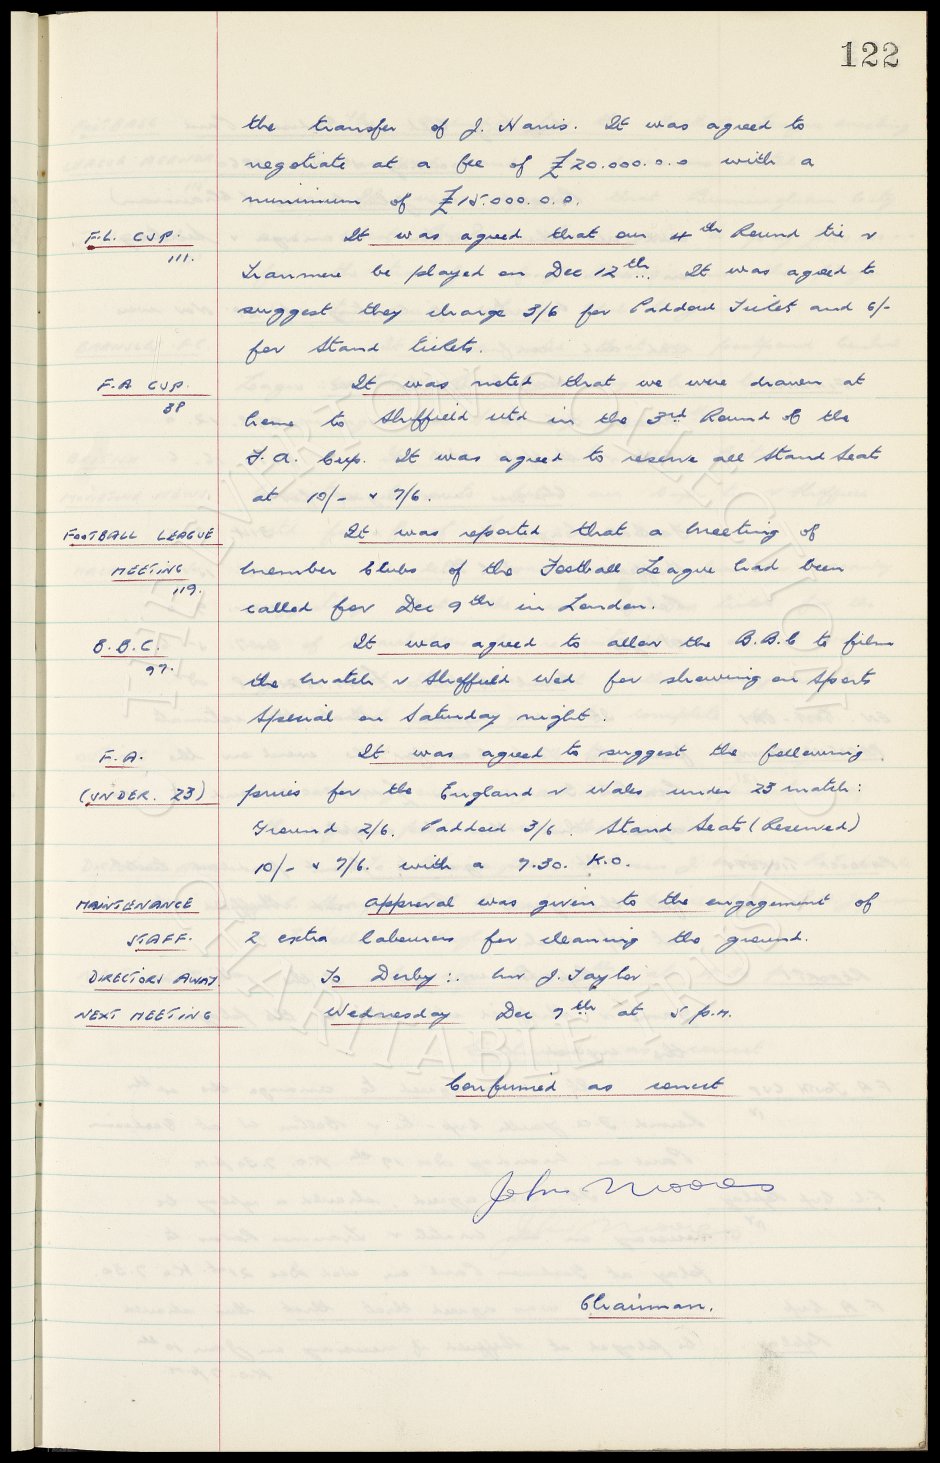 122
the transfer of J. Harris. It was agreed to
negotiate at a fee of £20.000.0.0 with a
minimum of £15.000.0.0.
F.L. CUP. It was agreed that our 4th Round tie v
111.
Tranmere be played on Dec 12th. It was agreed to
suggest they charge 3/6 for Paddock Tickets and 6/-
for Stand tickets.
F.A CUP. It was noted that we were drawn at
38
home to Sheffield Utd in the 3rd Round of the
F.A. Cup. It was agreed to reserve all Stand Seats
at 10/- & 7/6.
FOOTBALL LEAGUE It was reported that a meeting of
MEETING member Clubs of the Football League had been
119.
called for Dec 9th in London.
B.B.C. It was agreed to allow the B.B.C to film
97.
the match v Sheffield Wed for showing on Sports
Special on Saturday night.
F.A. It was agreed to suggest the following
(UNDER. 23) prices for the England v Wales under 23 match:
Ground 2/6. Paddock 3/6. Stand Seats (Reserved)
10/- & 7/6. with a 7.30. K.O.
MAINTENANCE Approval was given to the engagement of
STAFF. 2 extra labourers for cleaning the ground.
DIRECTORS AWAY. To Derby:. Mr J. Taylor
NEXT MEETING Wednesday Dec 7th at 5 p.m.
Confirmed as correct
John Moores
Chairman.
THE EVERTON COLLECTION
CHARITABLE TRUST